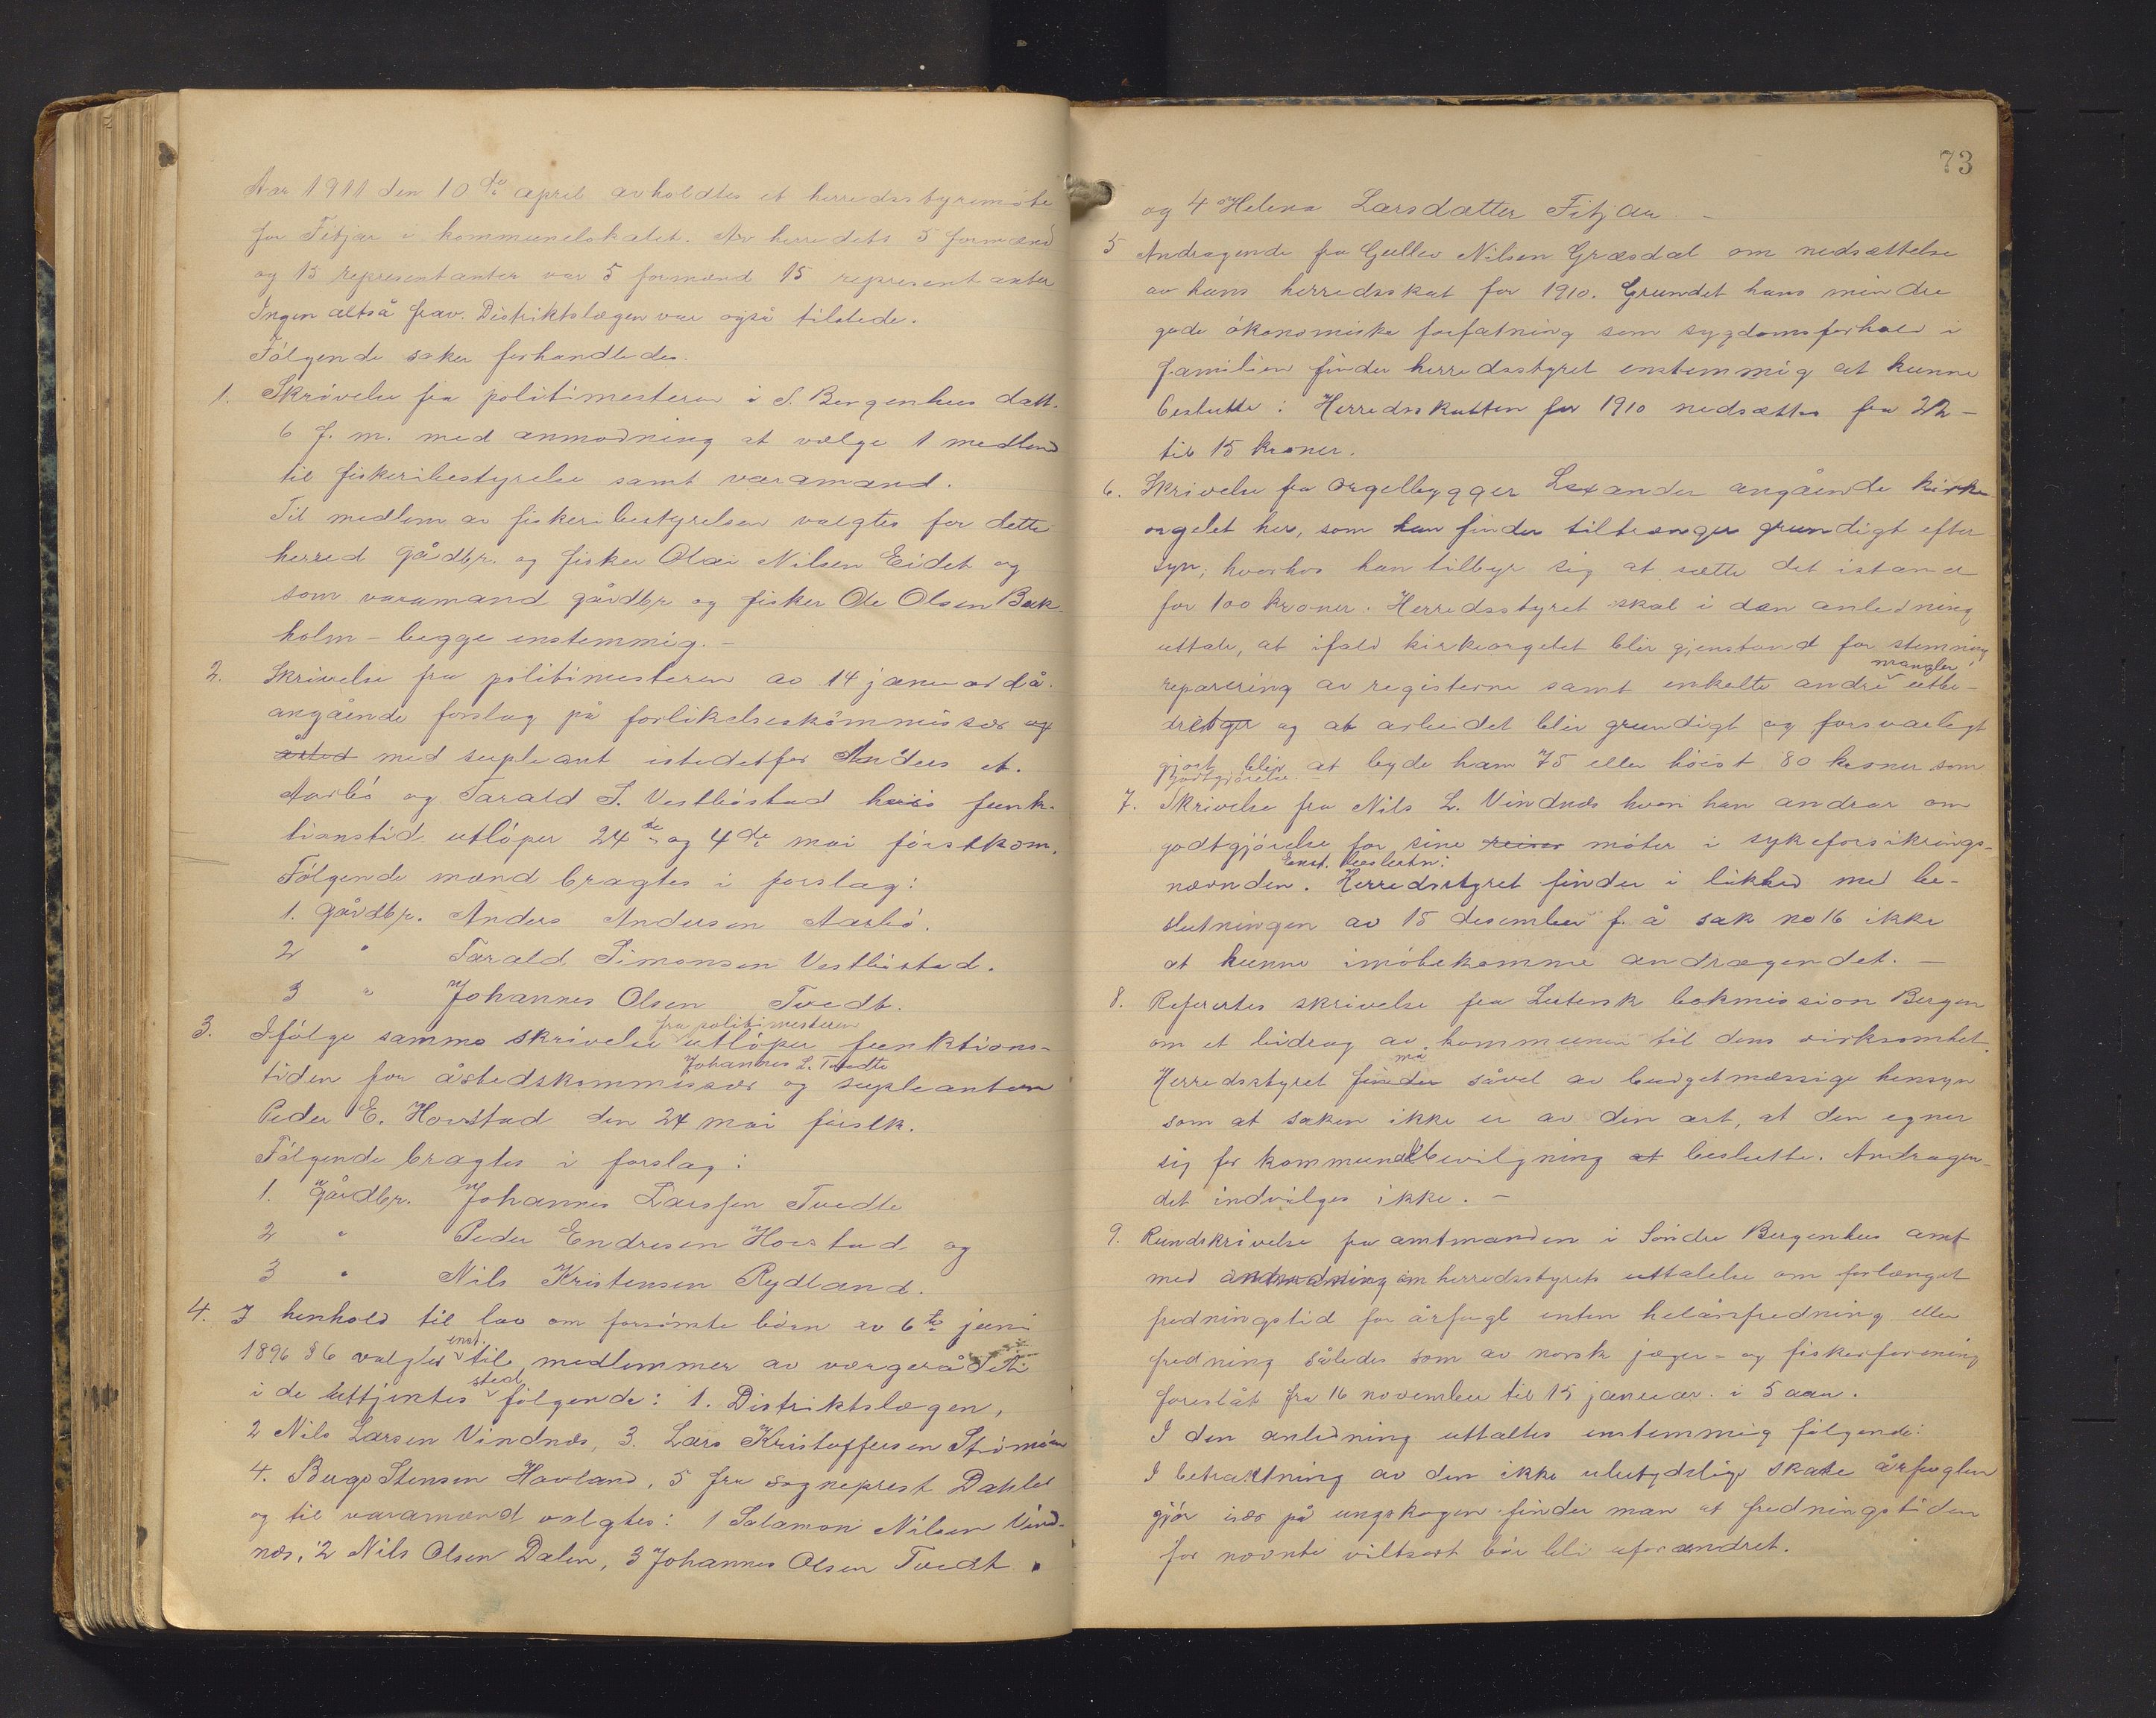 Aar 1911 den 10de april avholdtes et herredsstyremöte
for Fitjar i kommunelokalet. Av herredets 5 formænd
og 15 representanter var 5 formænd 15 representanter
Ingen altså frav. Distriktslægen var også tilstede.
Fölgende saker forhandledes.
1. Skrivelse fra politimesteren i S. Bergenhus datt.
6 f. m. med anmodning at vælge 1 medlem
til fiskeribestyrelse samt varamand.
Til medlem av fiskeribestyrelsen valgtes for dette
herred gårdbr. og fisker Olai Nilsen Eidet og
som varamand gårdbr og fisker Ole Olsen Bæk-
holm – begge enstemmig. –
2. Skrivelse fra politimesteren av 14 januar då.
angående forslag på forlikelseskommissær og
åsted med supleant istedetfor Anders A.
Aarbö og Tarald S. Vestböstad hvis funk-
tionstid utlöper 24de og 4de mai förstkom.
Fölgende mænd bragtes i forslag:
1. Gårdbr. Anders Andersen Aarbö.
2 " Tarald Simonsen Vestböstad.
3 " Johannes Olsen Tvedt.
3. Ifölge samme skrivelse fra politimesteren utlöper funktions-
tiden for åstedskommissær Johannes L. Tvedte og supleanten
Peder E. Hovstad den 24 mai förstk.
Fölgende bragtes i forslag:
1. Gårdbr. Johannes Larssen Tvedte
2 " Peder Endresen Hovstad og
3 " Nils Kristensen Rydland.
4. I henhold til lov om forsömte börn av 6te juni
1896 § 6 valgtes enst. til medlemmer av vergerådet
i de uttjentes sted fölgende: 1. Distriktslægen,
2 Nils Larsen Vindnes, 3. Lars Kristoffersen Strömöen
4. Berge Stensen Havland, 5 fru sogneprest Dahle
og til varamænd valgtes: 1 Salamon Nilsen Vind-
nes, 2 Nils Olsen Dalen, 3 Johannes Olsen Tvedt
73
og 4 Helena Larsdatter Fitjar –
5 Andragende fra Gullev Nilsen Græsdal om nedsættelse
av hans herredsskat for 1910. Grundet hans mindre
gode ökonomiske forfatning som sygdomsforhold i
familien finder herredsstyret enstemmig at kunne
beslutte: Herredsskatten for 1910 nedsættes fra 22 –
til 15 kroner.
6. Skrivelse fra orgelbygger Lexander angående kirke
orgelet her, som han finder tiltrænger grundigt efter
syn, hvorhos han tilbyr sig at sætte det istand
for 100 kroner. Herredsstyret skal i den anledning
uttale, at ifald kirkeorgelet blir gjenstand for stemning
reparering av registerne samt enkelte andre mangler utbe-
dret og at arbeidet blir grundigt og forsvarligt
gjort, blir at byde ham 75 eller höist 80 kroner som
godtgjörelse. –
7. Skrivelse fra Nils L. Vindnes hvori han andrar om
godtgjörelse for sine reiser möter i sykeforsikrings-
nævnden. Enst. beslutn: Herredsstyret finder i likhed med be-
slutningen av 15 desember f. å sak no 16 ikke
at kunne imötekomme andragendet. –
8. Refertes skrivelse fra Lutersk bokmission Bergen
om et bidrag av kommunen til dens virksomhet.
Herredsstyret finder må såvel av budgetmæssige hensyn
som at saken ikke er av den art, at den egner
sig for kommunalbevilgning at beslutte. Andragen-
det indvilges ikke. –
9. Rundskrivelse fra amtmanden i Söndre Bergenhus amt
med anmodning om herredsstyrets uttalelse om forlænget
fredningstid for årfugl enten helårsfredning eller
fredning således som av norsk jæger- og fiskerforening
foreslåt fra 16 november til 15 januar i 5 aar.
I den anledning uttaltes enstemmig fölgende:
I betraktning av den ikke ubetydelige skade årfuglen
gjör især på ungskogen finder man at fredningstiden
for nævnte viltsort bör bli uforandret.